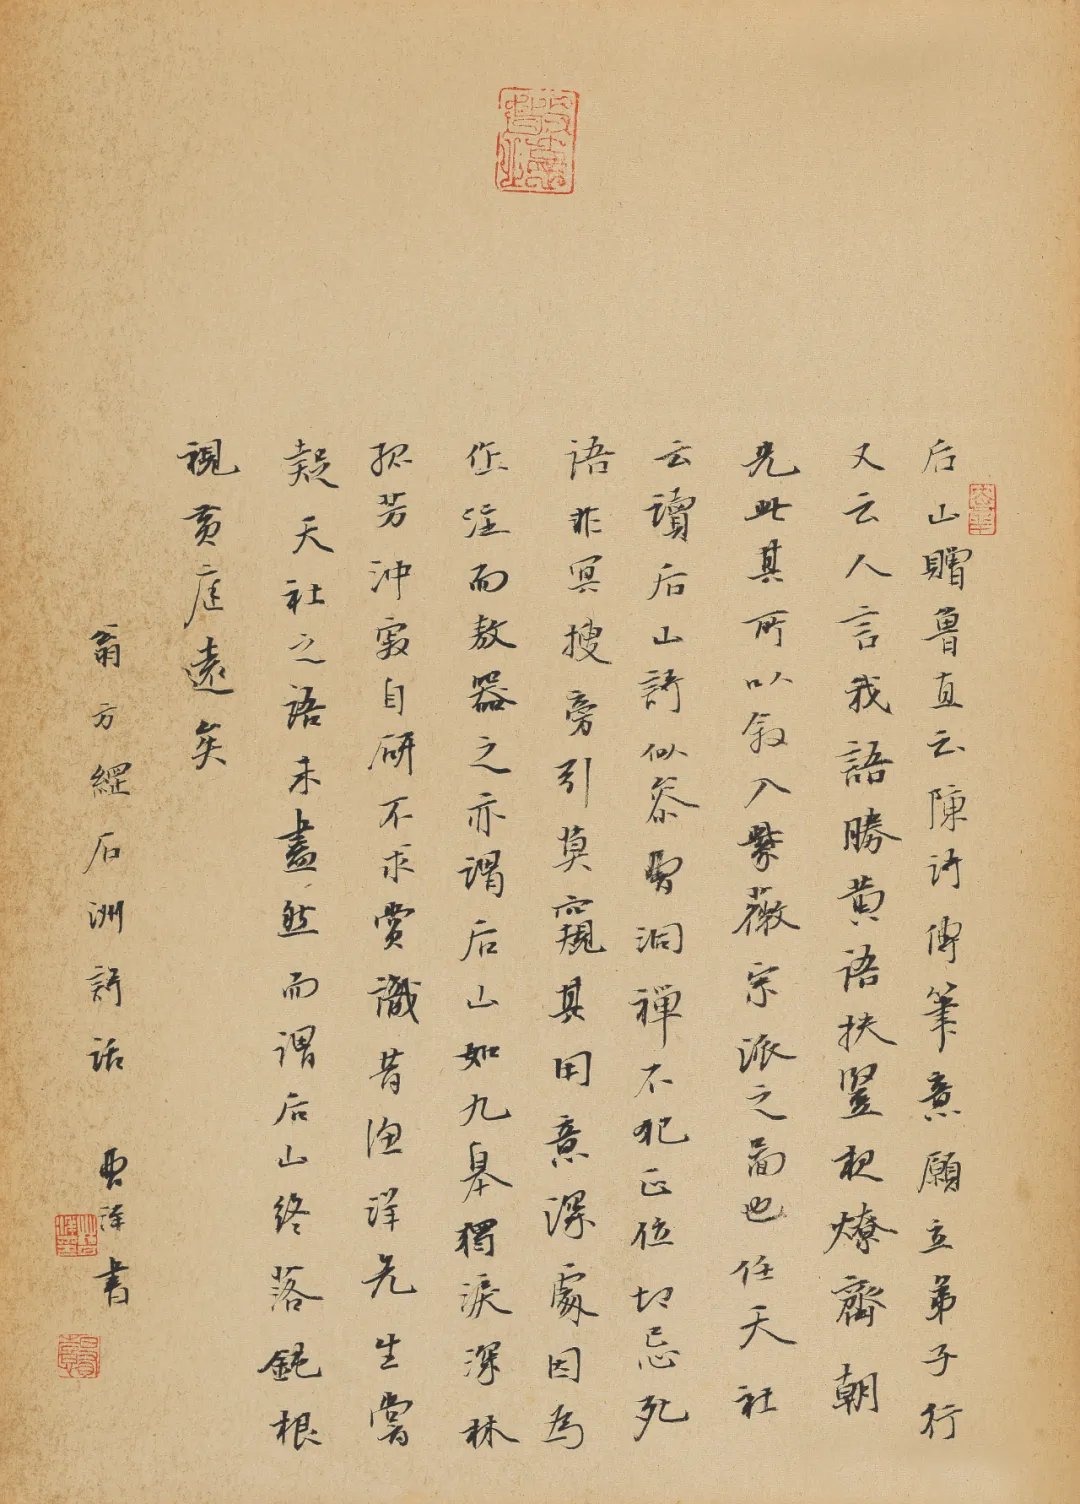 后山贈魯直云陳詩傳筆意願立弟子行
又云人言我語勝黄語扶豎夜燎齊朝
光此其所以敘入紫薇宗派之圖也任天社
云讀后山詩似參曹洞禪不犯正位切忌死
語非冥搜旁引莫窺其用意深處因為
作注而敖器之亦謂后山如九皋獨淚深林
孤芳沖寂自研不求賞識昔漁洋先生嘗
疑天社之語未盡然而謂后山終落鈍根
視黄庭遠矣
翁方綱石洲詩話 曹洋書